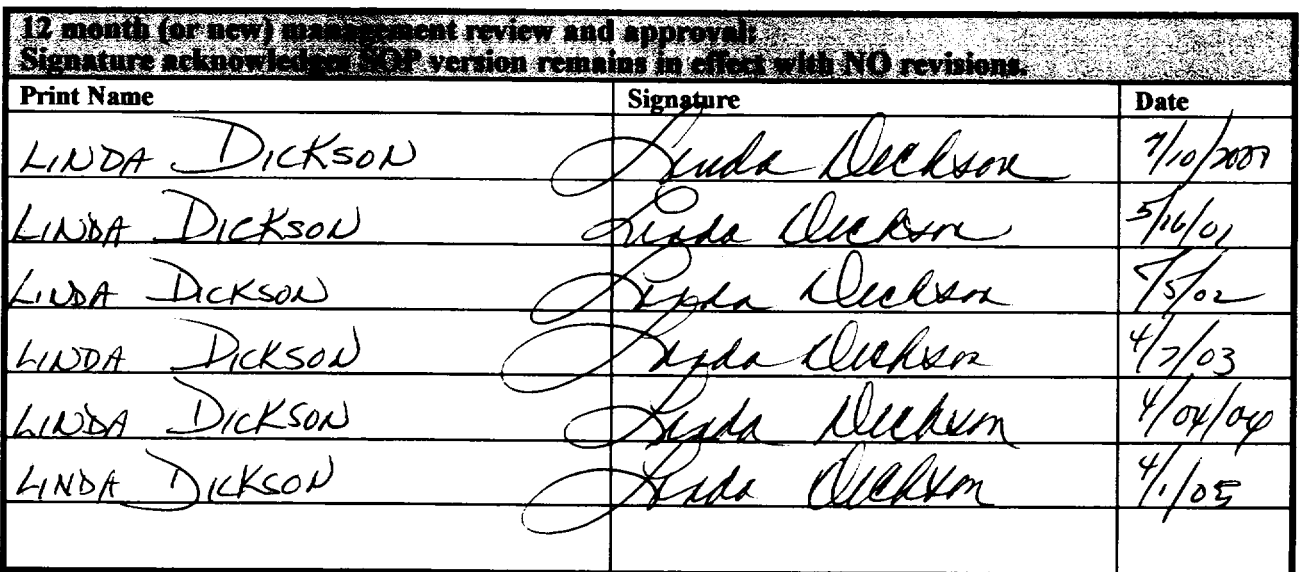 12 month (or new) management review and approval:
Signature acknowledges SOP version remains in effect with NO revisions.
Print Name Signature Date
LINDA DICKSON Linda Dickson 7/10/2000
LINDA DICKSON Linda Dickson 5/16/01
LINDA DICKSON Linda Dickson /5/02
LINDA DICKSON Linda Dickson 4/7/03
LINDA DICKSON Linda Dickson 4/04/04
LINDA DICKSON Linda Dickson 4/1/05